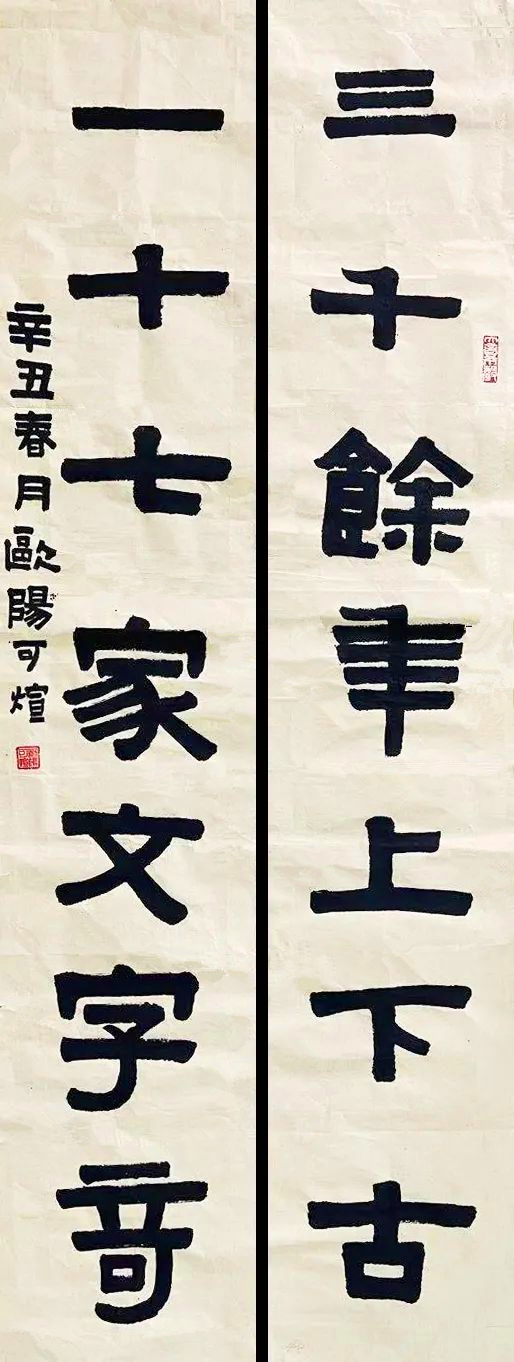 三千餘年上下古
一十七家文字奇
辛丑春月歐陽可煊